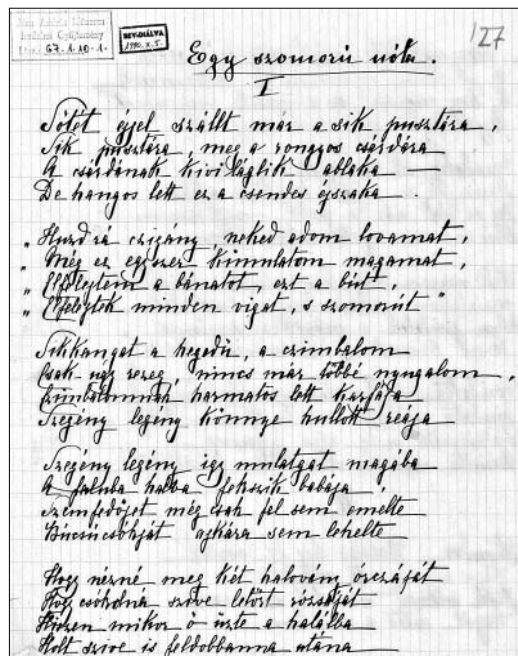 Irodalmi Gyűjtemény
67.1.10.1.
REVIDIÁLVA
1990. X. 5.
127
Egy szomorú nóta.
I
Sötét éjjel szállt már a sik pusztára,
Sik pusztára, meg a rongyos csárdára
A csárdának kiviláglik ablaka —
De hangos lett ez a csendes éjszaka.
„Huzd rá czigány, neked adom lovamat,
„Még ez egyszer kimulatom magamat,
„Elfelejtem a bánatot, ezt a bút,
„Elfelejtek minden vigat, s szomorút"
Sikkangat a hegedü, a czimbalom
Csak ugy rezeg, nincs már többé nyugalom,
harmatos lett
Szegény legény könnye hullott reája
Szegény legény igy mulatgat magába
A faluba halva fekszik babája,
Szemfedőjét még csak fel sem emelte
Búcsúcsókját ajkára sem lehelte
Hogy nézné meg két halovány órczáját
Hogy csókolná szive letört rózsáját
Hiszen mikor ő üzte a halálba
Holt szive is feldobbanna utána